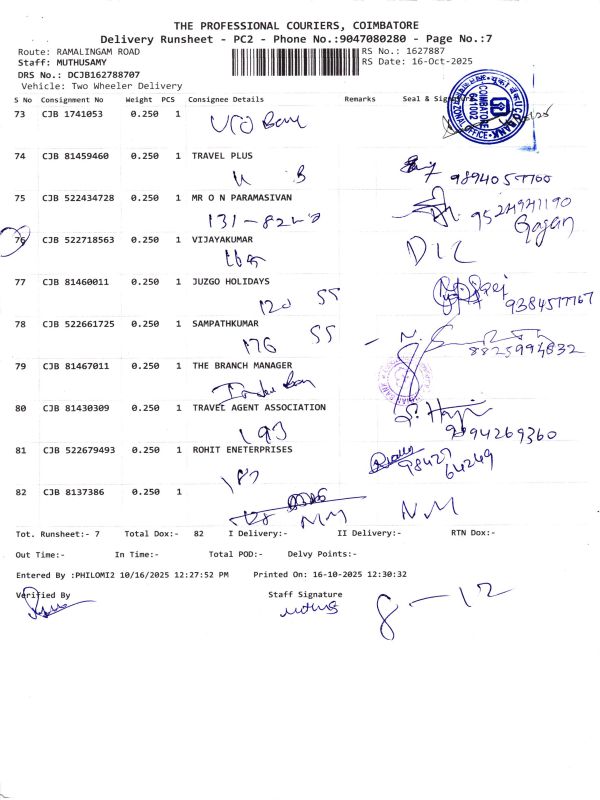 THE PROFESSIONAL COURIERS, COIMBATORE
Delivery Runsheet - PC2 - Phone No.:9047080280 - Page No.:7
Route: RAMALINGAM ROAD
RS No.: 1627887
Staff: MUTHUSAMY
RS Date: 16-Oct-2025
DRS No.: DCJB162788707
Vehicle: Two Wheeler Delivery
S No Consignment No Weight PCS Consignee Details Remarks Seal &
73 CJB 1741053 0.250 1
UCO Bank
UCO BANK
COIMBATORE
641002
OFFICE
74 CJB 81459460 0.250 1 TRAVEL PLUS
75 CJB 522434728 0.250 1 MR O N PARAMASIVAN
Gajan
76 CJB 522718563 0.250 1 VIJAYAKUMAR
DIL
77 CJB 81460011 0.250 1 JUZGO HOLIDAYS
120 SS
9384577767
78 CJB 522661725 0.250 1 SAMPATHKUMAR
176 SS
8825994832
79 CJB 81467011 0.250 1 THE BRANCH MANAGER
80 CJB 81430309 0.250 1 TRAVEL AGENT ASSOCIATION
193
9994269360
81 CJB 522679493 0.250 1 ROHIT ENETERPRISES
98427
64249
82 CJB 8137386 0.250 1
NM NM
Tot. Runsheet:- 7 Total Dox:- 82 I Delivery:- II Delivery:- RTN Dox:-
Out Time:- In Time:- Total POD:- Delvy Points:-
Entered By :PHILOMI2 10/16/2025 12:27:52 PM Printed On: 16-10-2025 12:30:32
Verified By Staff Signature
8-12